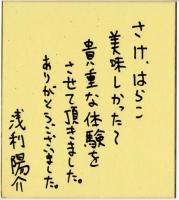 さけ、はらこ
美味しかった〜
貴重な体験を
させて頂きました。
ありがとうございました。
浅利陽介